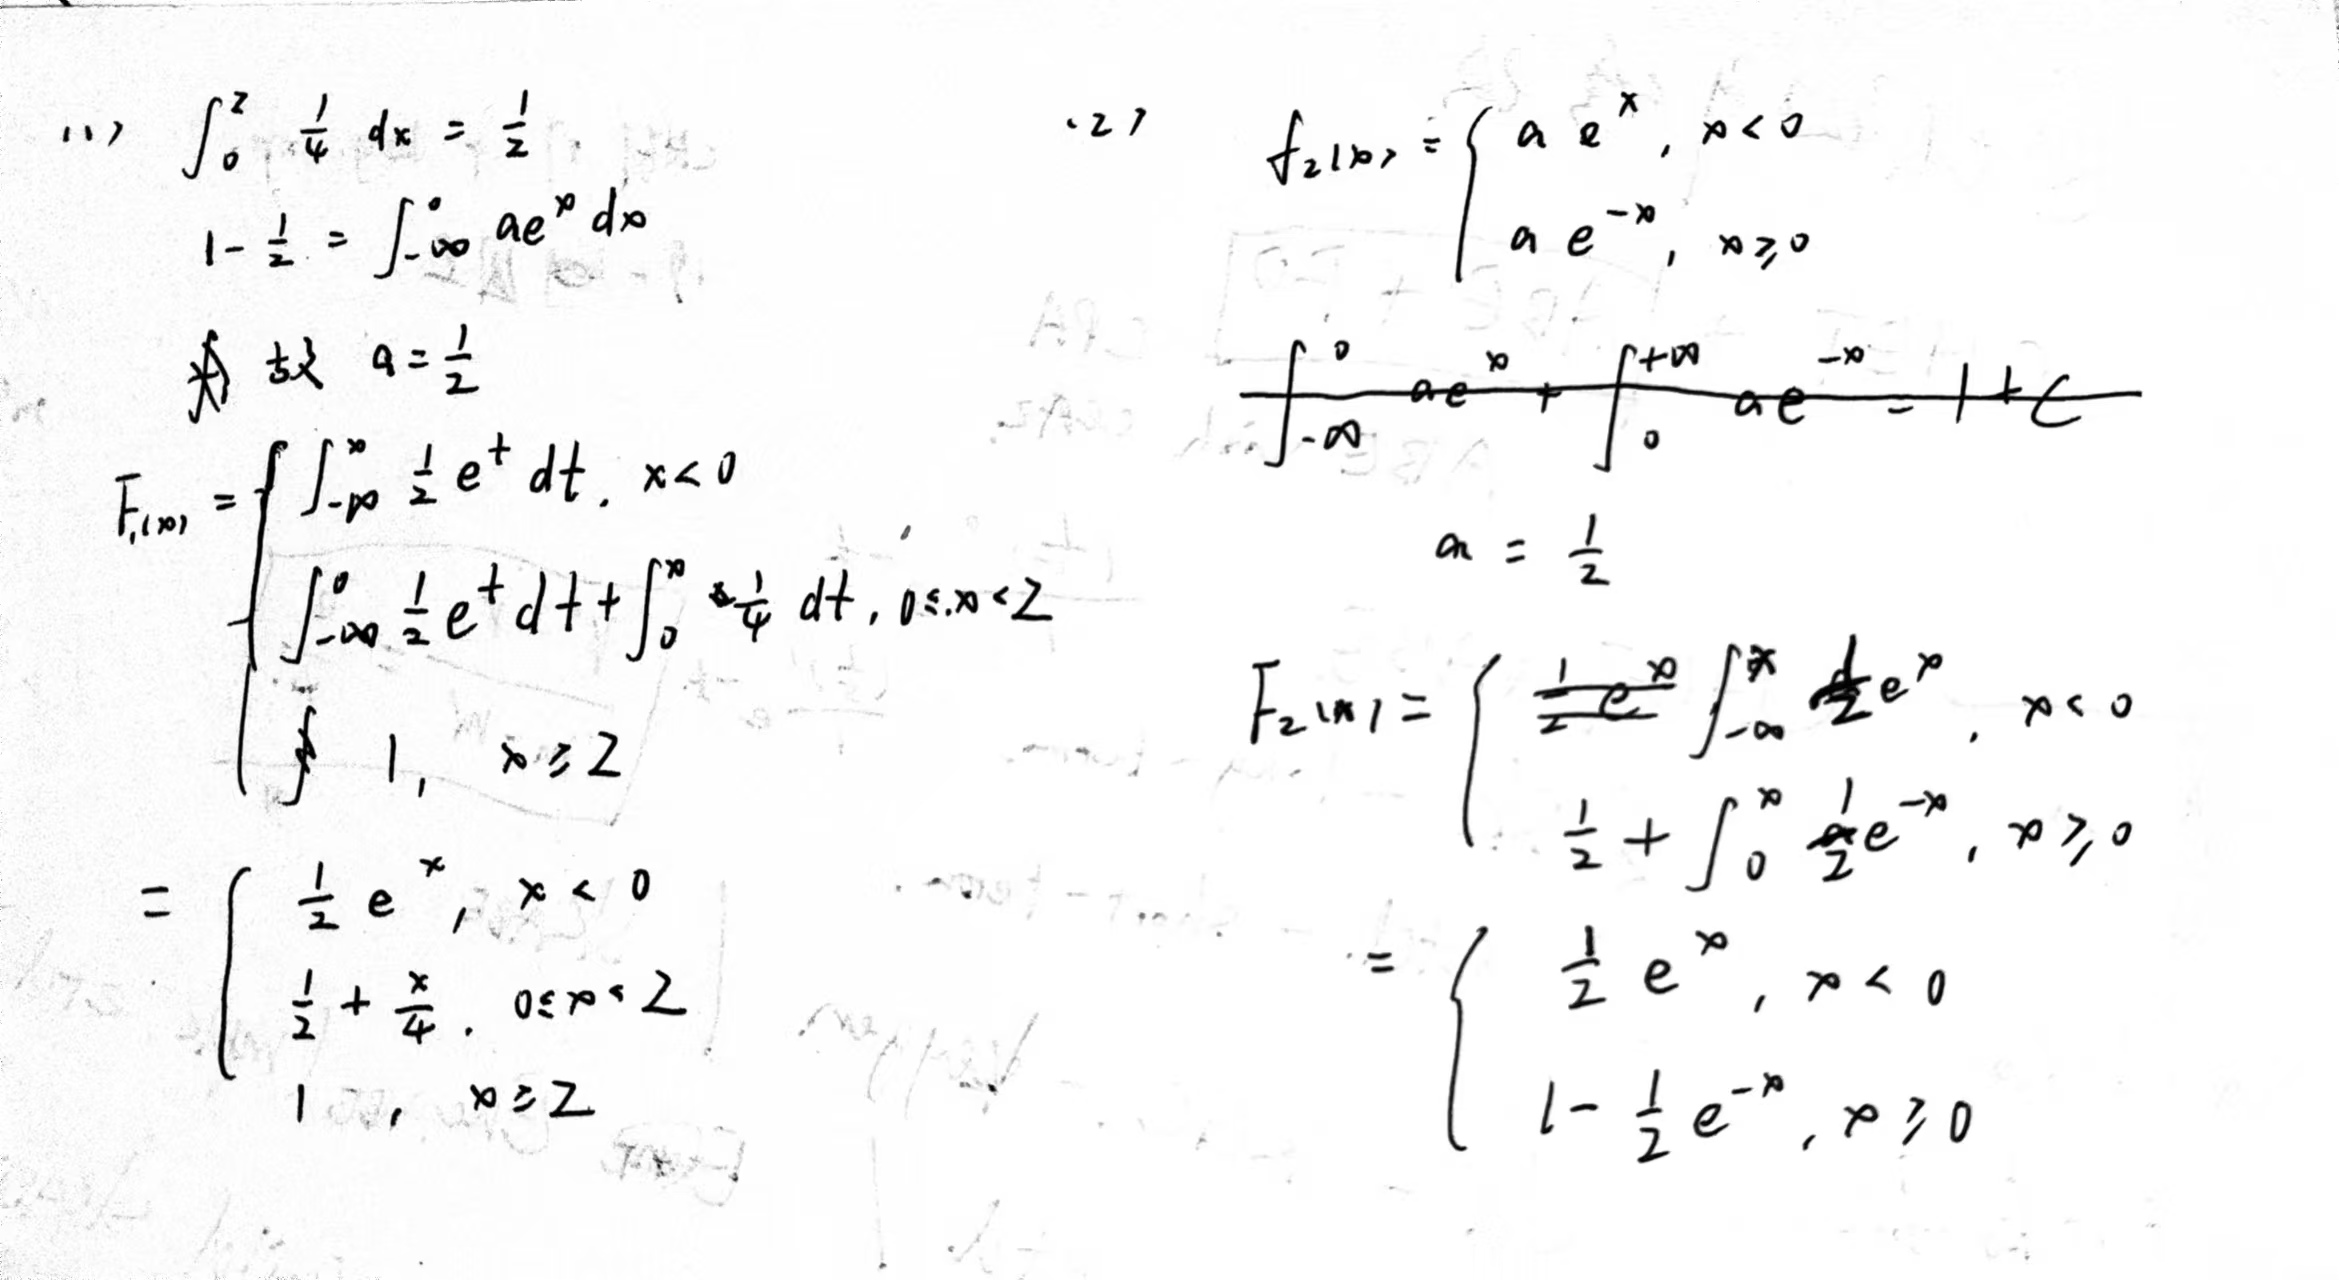 (1) ∫₀² 1/4 dx = 1/2
1 - 1/2 = ∫_{-∞}^0 ae^x dx
故 a = 1/2
F₁(x) = { ∫_{-∞}^x 1/2 e^t dt, x < 0
∫_{-∞}^0 1/2 e^t dt + ∫_0^x 1/4 dt, 0 ≤ x < 2
1, x ≥ 2
= { 1/2 e^x, x < 0
1/2 + x/4, 0 ≤ x < 2
1, x ≥ 2
(2) f₂(x) = { a e^x, x < 0
a e^{-x}, x ≥ 0
∫_{-∞}^0 ae^x + ∫_0^{+∞} ae^{-x} = 1 + C
a = 1/2
F₂(x) = { 1/2 e^x ∫_{-∞}^x 1/2 e^x, x < 0
1/2 + ∫_0^x 1/2 e^{-x}, x ≥ 0
= { 1/2 e^x, x < 0
1 - 1/2 e^{-x}, x ≥ 0